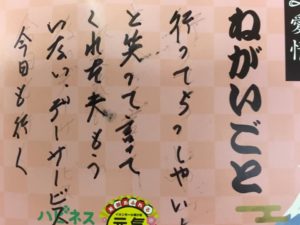 の愛情
ねがいごと
行ってらっしゃいと
と笑って言って
くれた夫もう
いない、デーサービス
今日も行く
ハピネス
元気